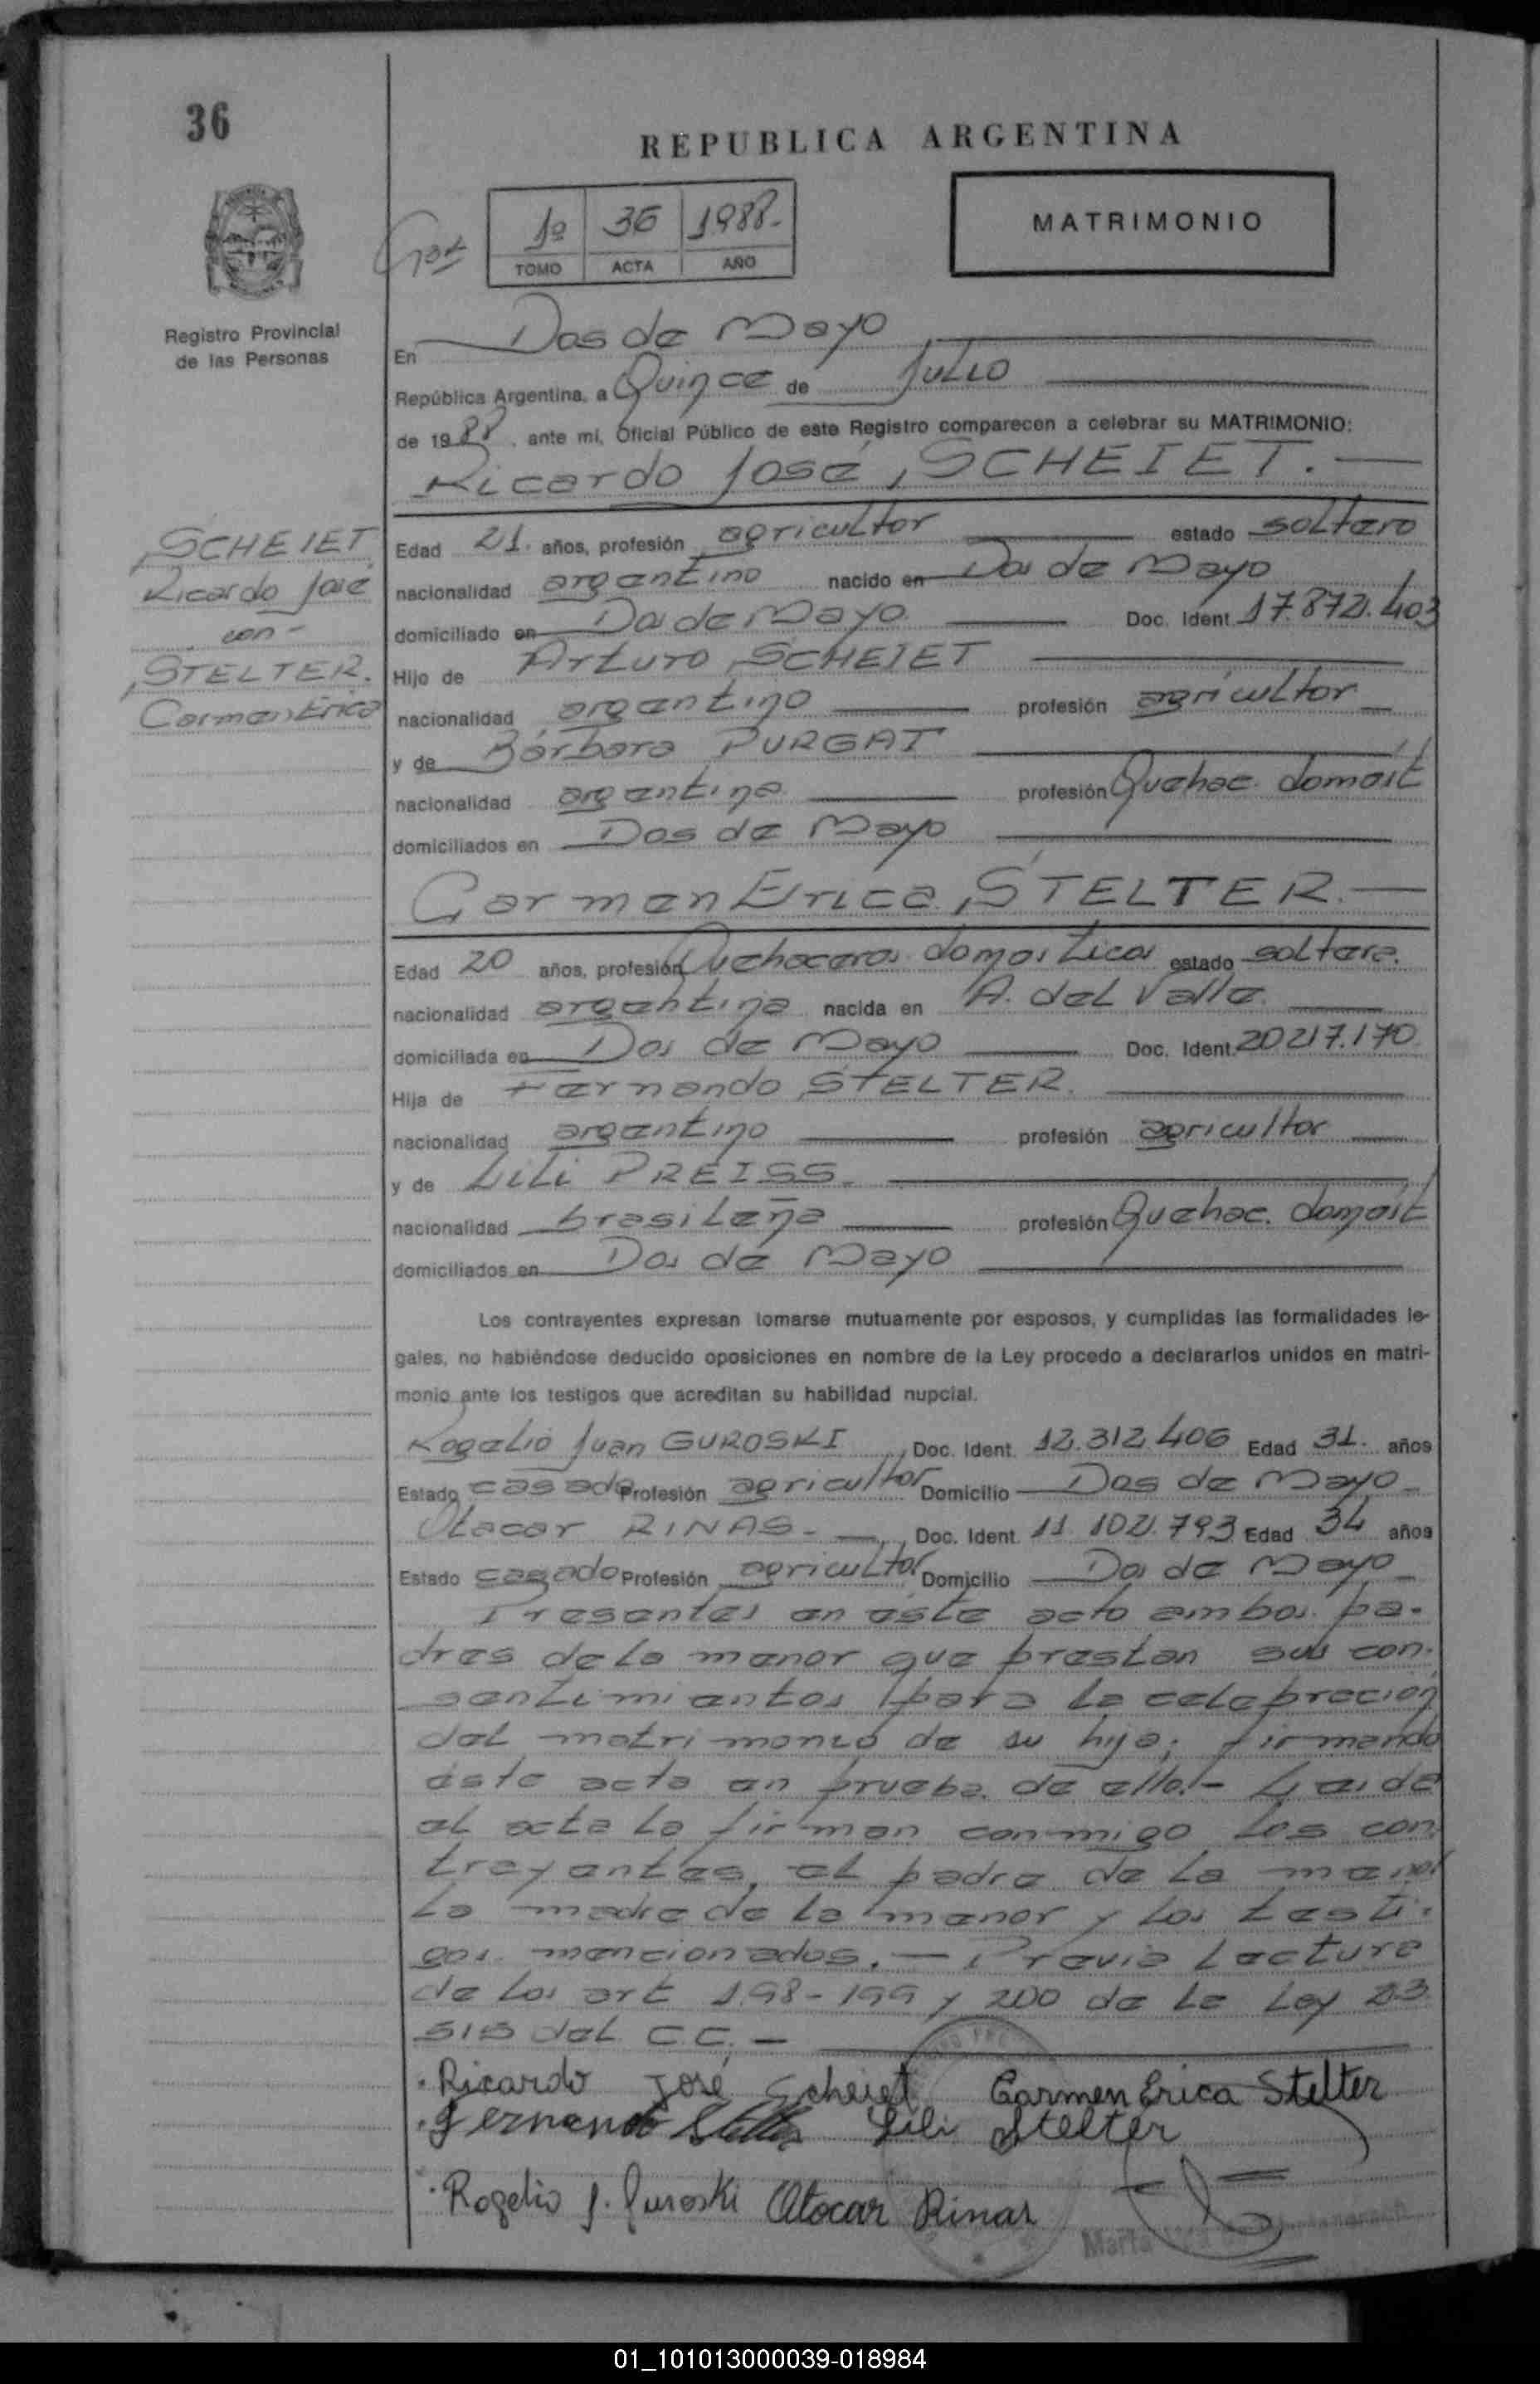 36
REPUBLICA ARGENTINA
1º 36 1988.-
TOMO ACTA AÑO
MATRIMONIO
Registro Provincial
de las Personas
En Dos de Mayo
República Argentina, a Quince de Julio
de 1988, ante mí, Oficial Público de este Registro comparecen a celebrar su MATRIMONIO:
Ricardo José, SCHEIET.
SCHEIET
Ricardo José
con-
STELTER.
Carmen Erica
Edad 21. años, profesión agricultor estado soltero
nacionalidad argentino nacido en Dos de Mayo
domiciliado en Dos de Mayo Doc. Ident. 17.872.403
Hijo de Arturo SCHEIET
nacionalidad argentino profesión agricultor
y de Bárbara PURGAT
nacionalidad argentina profesión Quehac. domést
domiciliados en Dos de Mayo
Carmen Erica, STELTER.
Edad 20 años, profesión Quehaceres domésticos estado soltera.
nacionalidad argentina nacida en A. del Valle.
domiciliada en Dos de Mayo Doc. Ident. 20.217.170
Hija de Fernando STELTER.
nacionalidad argentino profesión agricultor
y de Lili PREISS.
nacionalidad brasileña profesión Quehac. domést
domiciliados en Dos de Mayo
Los contrayentes expresan tomarse mutuamente por esposos, y cumplidas las formalidades le-
gales, no habiéndose deducido oposiciones en nombre de la Ley procedo a declararlos unidos en matri-
monio ante los testigos que acreditan su habilidad nupcial.
Rogelio Juan GUROSKI, Doc. Ident. 12.312.406 Edad 31. años
Estado casado Profesión agricultor Domicilio Dos de Mayo
Otacar RINAS.-, Doc. Ident. 11.102.793 Edad 34 años
Estado casado Profesión agricultor Domicilio Dos de Mayo
Presentes en éste acto ambos pa-
dres de la menor que prestan sus con-
sentimientos para la celebración
del matrimonio de su hija; firmando
ésta acta en prueba de ello.- Leída
el acta la firman conmigo los con
trayentes, el padre de la menor
la madre de la menor y los testi-
gos mencionados.- Previa lectura
de los art 198-199 y 200 de la Ley 23
515 del C.C.-
Ricardo José Scheiet Carmen Erica Stelter
Fernando Stelter Lili Stelter
Rogelio J. Guroski Otocar Rinas
Marta
01_101013000039-018984